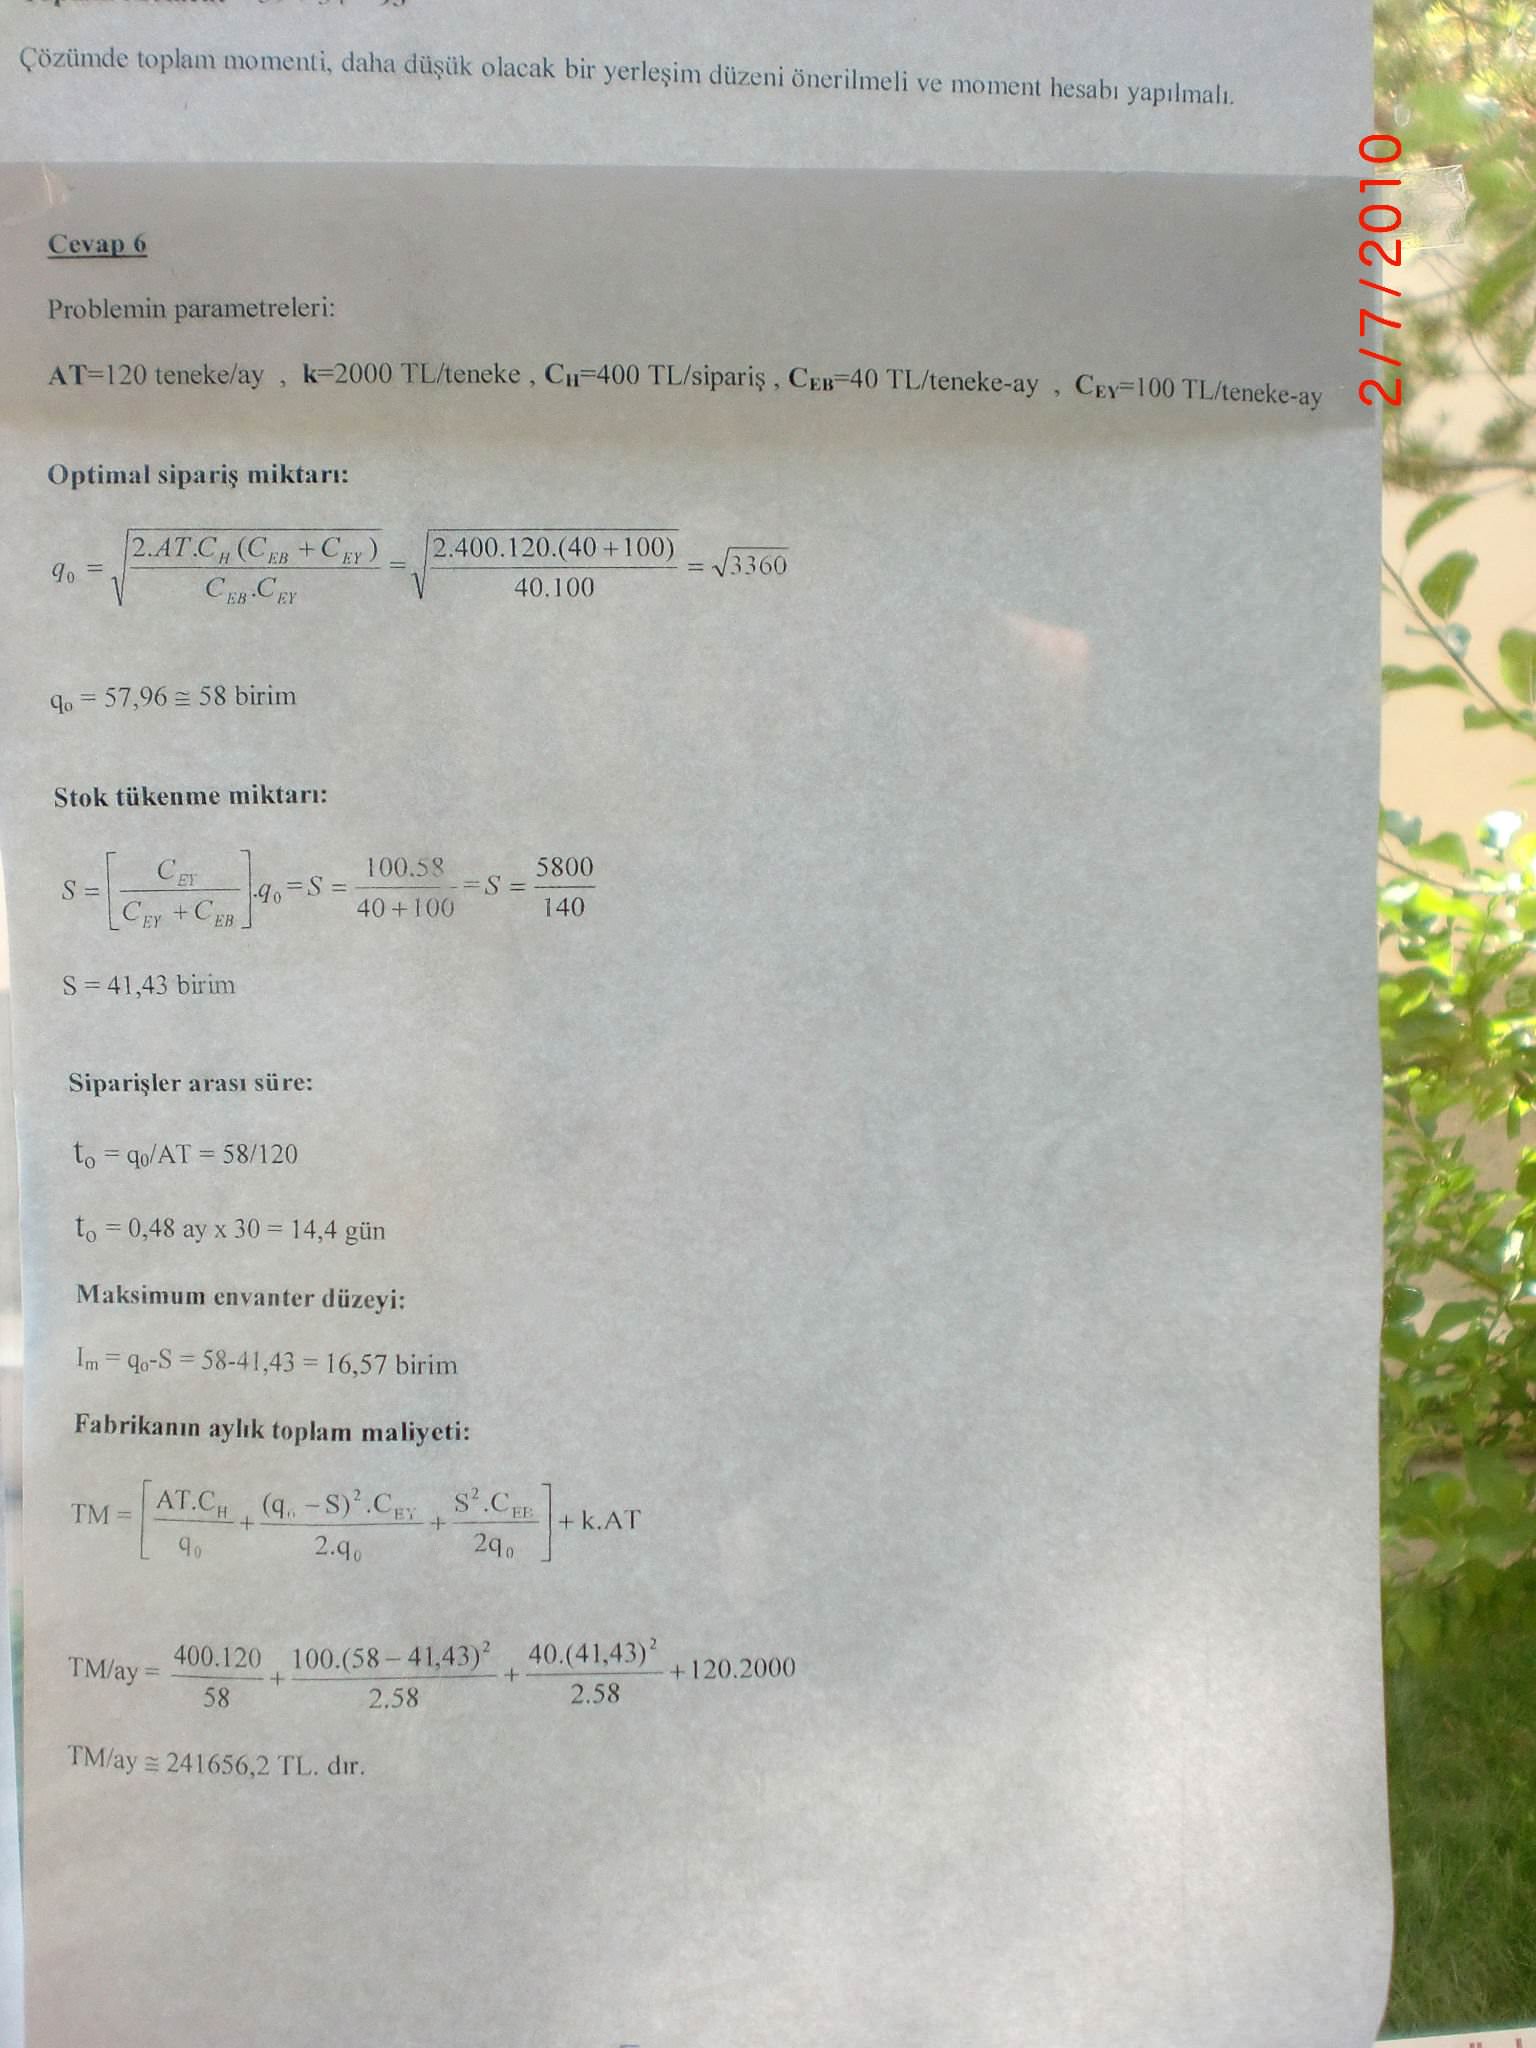 Çözümde toplam momenti, daha düşük olacak bir yerleşim düzeni önerilmeli ve moment hesabı yapılmalı.
2/7/2010
Cevap 6
Problemin parametreleri:
AT=120 teneke/ay , k=2000 TL/teneke , C_H=400 TL/sipariş , C_EB=40 TL/teneke-ay , C_EY=100 TL/teneke-ay
Optimal sipariş miktarı:
q₀ = √(2.AT.C_H (C_EB + C_EY) / C_EB.C_EY) = √(2.400.120.(40+100) / 40.100) = √3360
q₀ = 57,96 ≅ 58 birim
Stok tükenme miktarı:
S = [C_EY / (C_EY + C_EB)].q₀ = S = 100.58 / (40+100) = S = 5800 / 140
S = 41,43 birim
Siparişler arası süre:
t₀ = q₀/AT = 58/120
t₀ = 0,48 ay x 30 = 14,4 gün
Maksimum envanter düzeyi:
I_m = q₀-S = 58-41,43 = 16,57 birim
Fabrikanın aylık toplam maliyeti:
TM = [AT.C_H / q₀ + (q₀ – S)².C_EY / 2.q₀ + S².C_EB / 2q₀] + k.AT
TM/ay = 400.120 / 58 + 100.(58 – 41,43)² / 2.58 + 40.(41,43)² / 2.58 + 120.2000
TM/ay ≅ 241656,2 TL. dır.